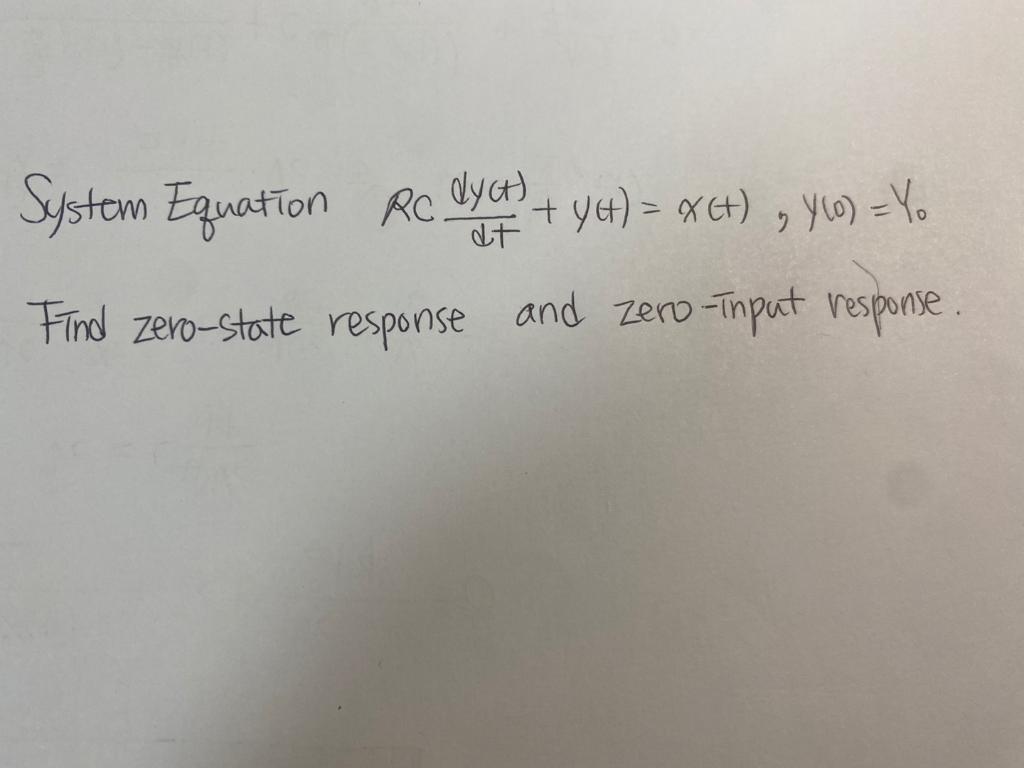 System Equation RC dy(t)/dt + y(t) = x(t) , y(0) = Y₀
Find zero-state response and zero-input response.